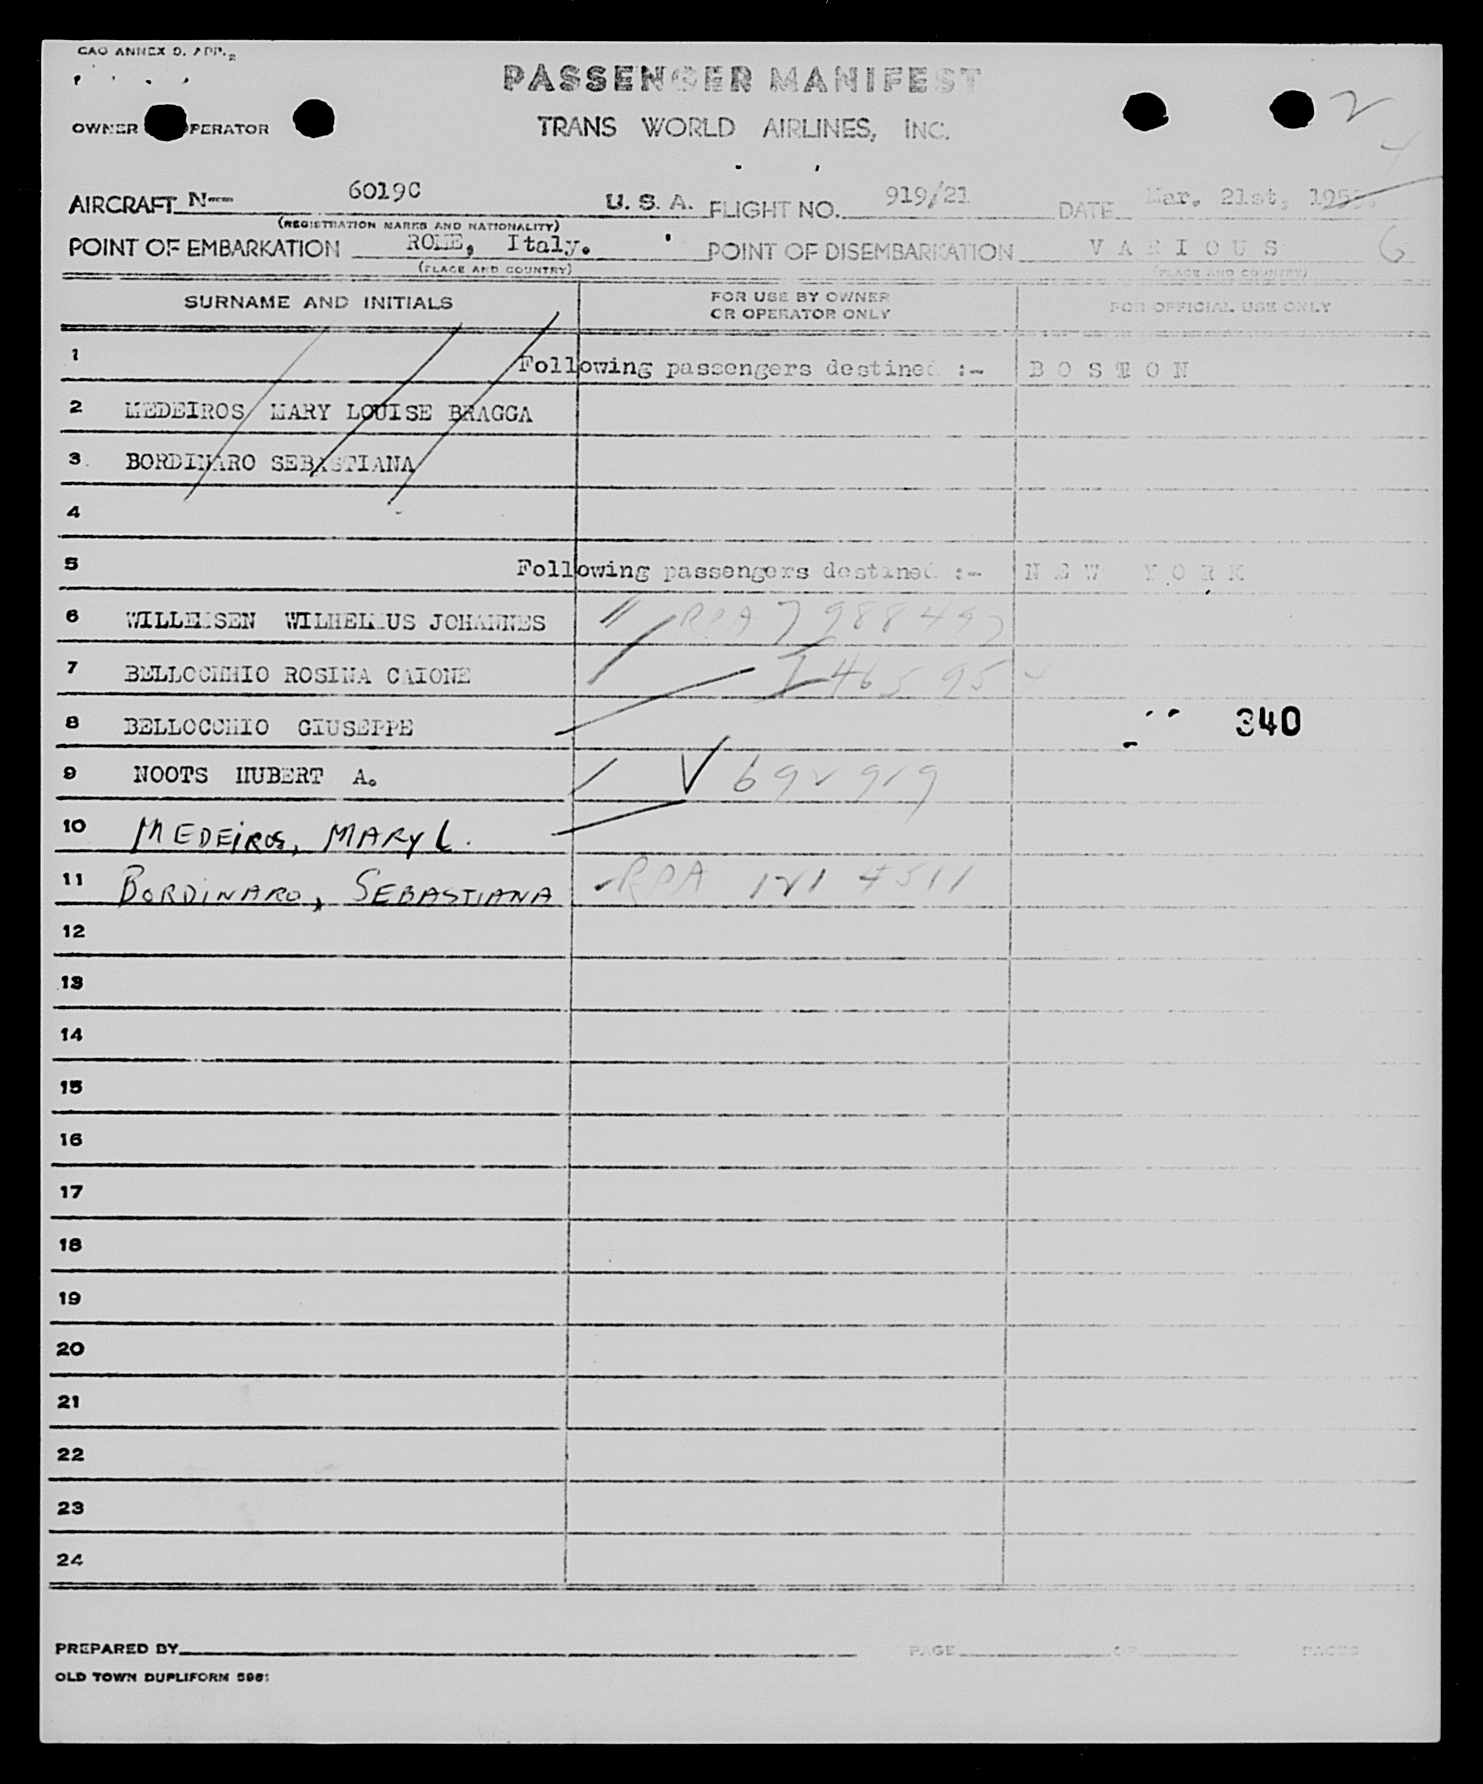 CAO ANNEX 9. APP. 2
PASSENGER MANIFEST
2
OWNER PERATOR
TRANS WORLD AIRLINES, INC.
AIRCRAFT N-- 6019C U. S. A. FLIGHT NO. 919/21 DATE Mar. 21st,
(REGISTRATION MARKS AND NATIONALITY)
POINT OF EMBARKATION ROME, Italy. POINT OF DISEMBARKATION V A R I O U S 6
(PLACE AND COUNTRY) (PLACE AND COUNTRY)
SURNAME AND INITIALS FOR USE BY OWNER OR OPERATOR ONLY FOR OFFICIAL USE ONLY
1 Following passengers destined :- B O S T O N
2 MEDEIROS MARY LOUISE BRAGGA
3 BORDINARO SEBASTIANA
4
5 Following passengers destined :- N E W Y O R K
6 WILLEMSEN WILHELMUS JOHANNES RPA 7988497
7 BELLOCHHIO ROSINA CAIONE
8 BELLOCCHIO GIUSEPPE 340
9 NOOTS HUBERT A.
10 MEDEIROS, MARY L.
11 BORDINARO, SEBASTIANA RPA 121 4511
12
13
14
15
16
17
18
19
20
21
22
23
24
PREPARED BY PAGE OF PAGES
OLD TOWN DUPLIFORM